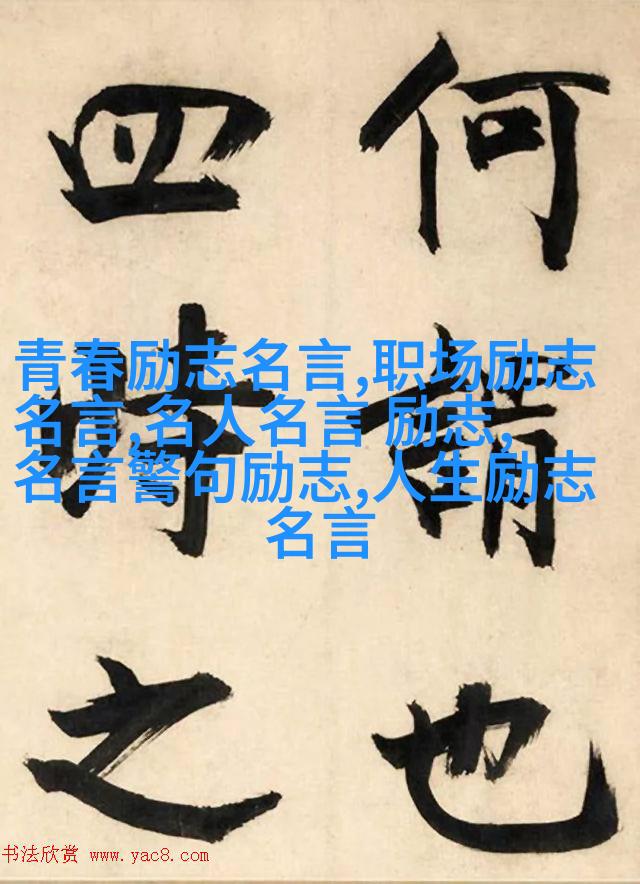 何謂也
四時之
青春励志名言,职场励志
名言,名人名言 励志,
名言警句励志,人生励志
名言
书法欣赏 www.yac8.com